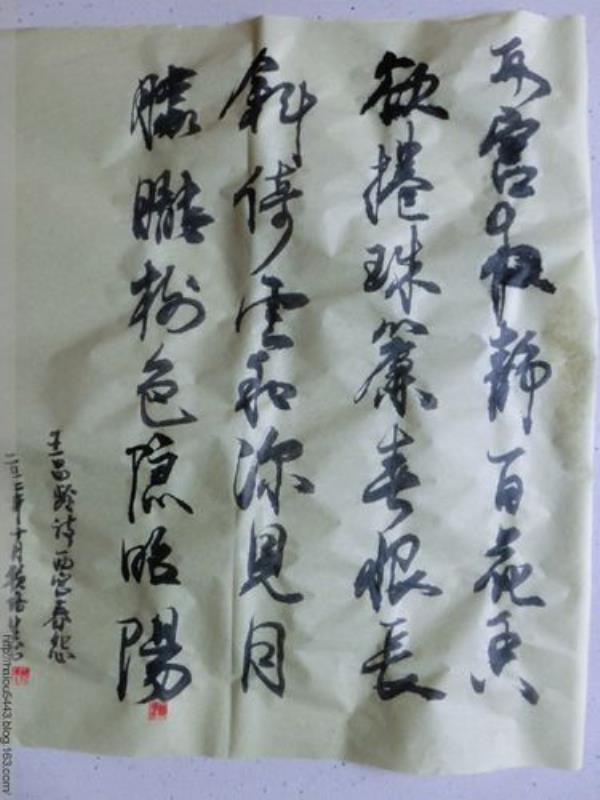 西宫夜静百花香
欲捲珠簾春恨長
斜倚雲和深見月
朦朧樹色隐昭陽
王昌龄诗西宫春怨
二〇一二年十月
http://haiou5443.blog.163.com/